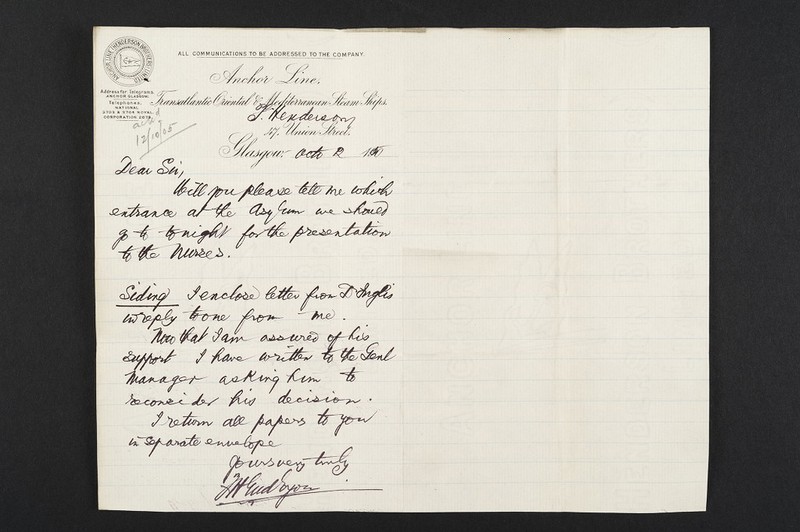 ANCHOR LINE (HENDERSON BROTHERS) LIMITED
ALL COMMUNICATIONS TO BE ADDRESSED TO THE COMPANY.
Anchor Line,
Address for Telegrams.
ANCHOR GLASGOW.
Transatlantic Oriental & Mediterranean Steam Ships.
Telephones.
NATIONAL
CORPORATION
T. Henderson
47, Union Street,
12/10/05
Glasgow, Octo 12 190
Dear Sir,
Will you please tell me which
entrance at the Asylum we should
go to to-night for the presentation
to the Nurses.
Siding I enclose letter from D Inglis
in reply to one from me.
Now that I am assured of his
support I have written to the Genl
Manager asking him to
reconsider his decision.
I return all papers to you
in separate envelope
Yours very truly